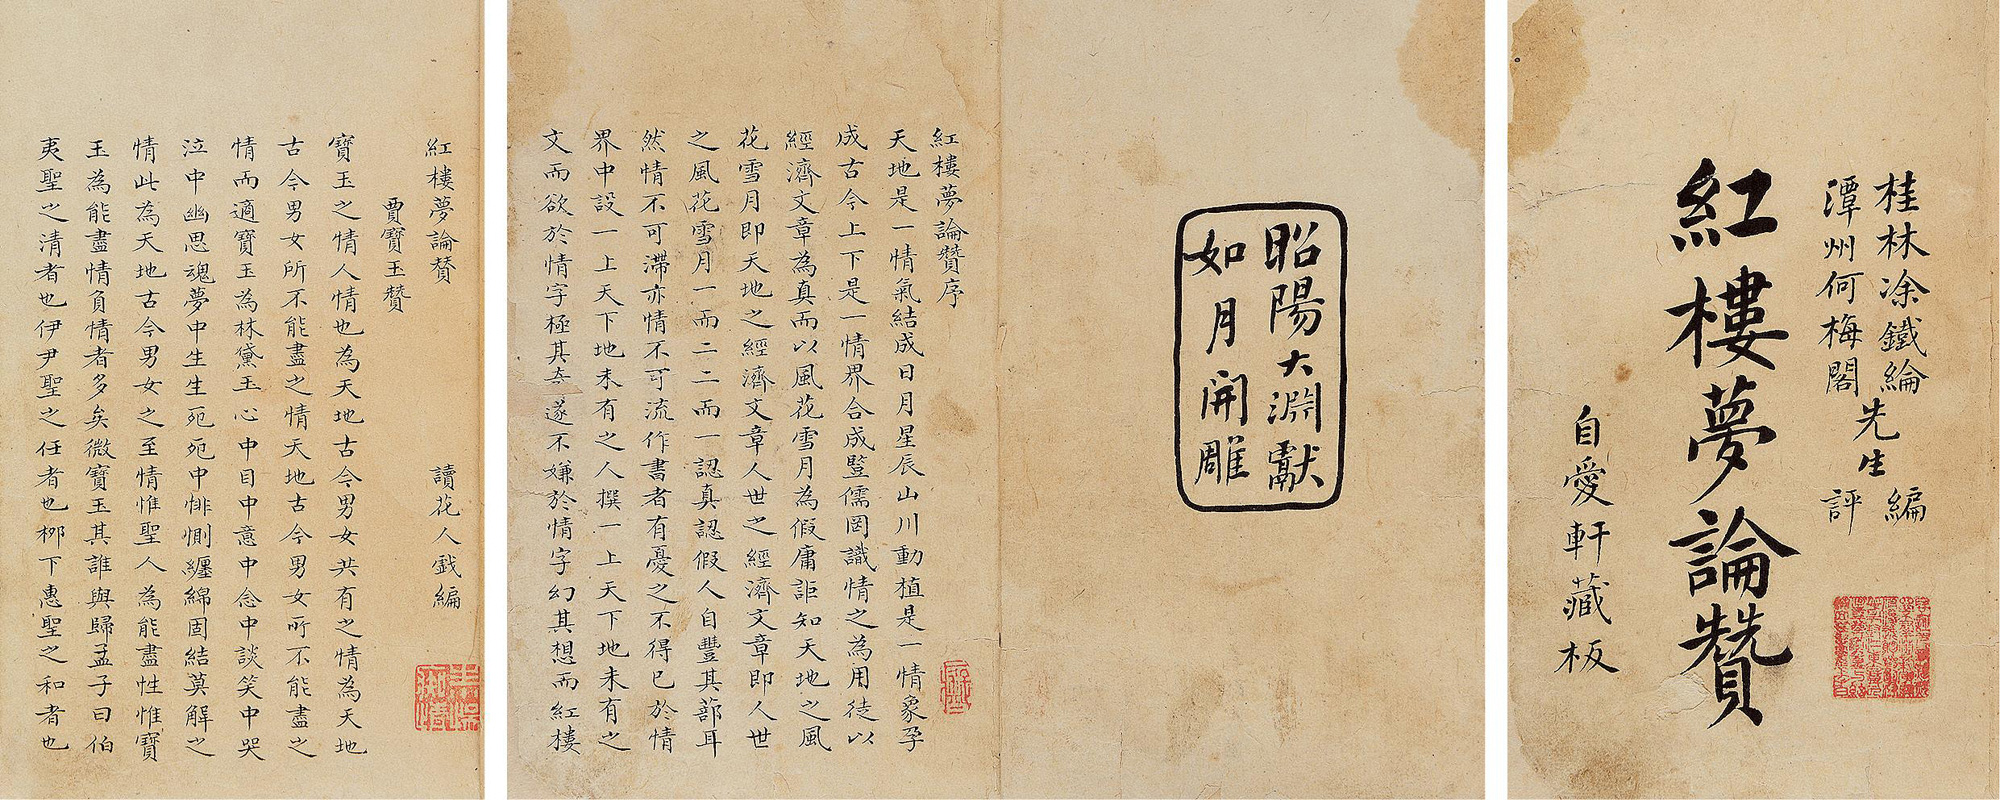 桂林涂鐵綸先生編
潭州何梅閣評
紅樓夢論贊
自愛軒藏板
昭陽大淵獻
如月開雕
紅樓夢論贊序
天地是一情氣結成日月星辰山川動植是一情象孕
成古今上下是一情界合成豎儒罔識情之為用徒以
經濟文章為真而以風花雪月為假庸詎知天地之風
花雪月即天地之經濟文章人世之經濟文章即人世
之風花雪月一而二二而一認真認假人自豐其蔀耳
然情不可滯亦情不可流作書者有憂之不得已於情
界中設一上天下地未有之人撰一上天下地未有之
文而欲於情字極其奇遂不嫌於情字幻其想而紅樓
紅樓夢論贊
讀花人戲編
賈寶玉贊
寶玉之情人情也為天地古今男女共有之情為天地
古今男女所不能盡之情天地古今男女所不能盡之
情而適寶玉為林黛玉心中目中意中念中談笑中哭
泣中幽思魂夢中生生死死中悱惻纏綿固結莫解之
情此為天地古今男女之至情惟聖人為能盡性惟寶
玉為能盡情負情者多矣微寶玉其誰與歸孟子曰伯
夷聖之清者也伊尹聖之任者也柳下惠聖之和者也